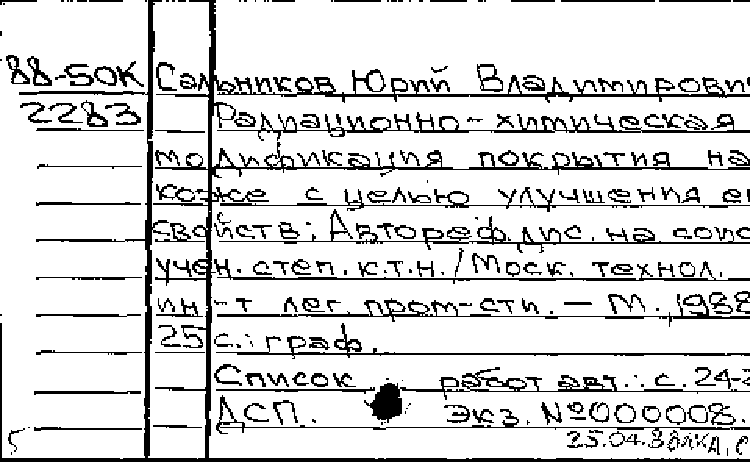 88-50К Сальников, Юрий Владимирови
2283 Радиационно-химическая
модификация покрытия на
коже с целью улучшения ег
свойств: Автореф. дис. на соис
учен. степ. к.т.н. / Моск. технол.
ин-т лег. пром-сти. — М., 1988
25 с.: граф.
Список работ авт.: с. 24-2
ДСП. Экз. №000008.
5 25.04.88